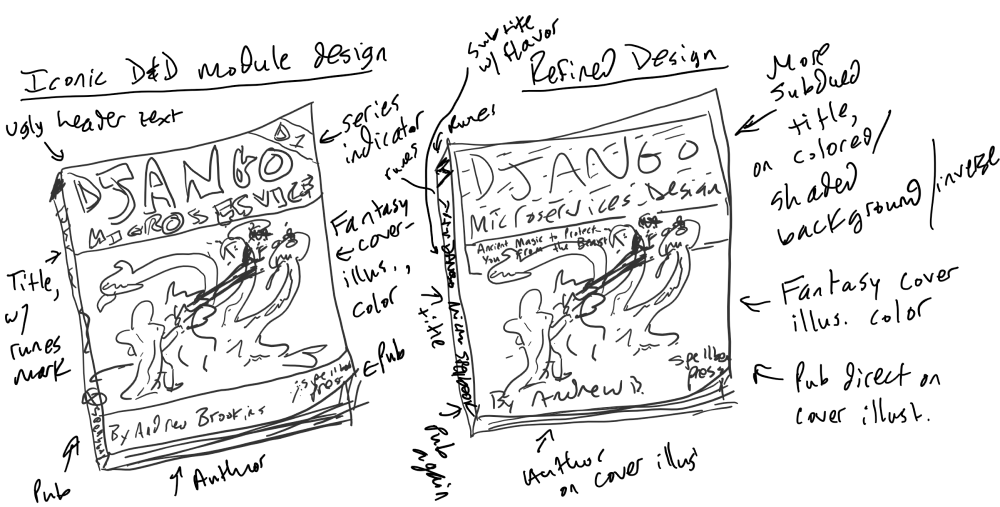 Iconic D&D module design
Ugly header text
series
indicator
D1
DJANGO
runes
Fantasy
cover-
illus.,
color
Title,
w/
runes
mark
Pub
By Andrew Brookins
press
Pub
Author
subtitle
w/ flavor
Refined Design
runes
DJANGO
Microservices Design
Ancient Magic to Protect
You from the Beast
title
By Andrew B.
press
Pub
again
Author
on cover illus
More
subdued
title,
on colored/
shaded
background/
inverse
Fantasy cover
illus. color
Pub direct on
cover illust.